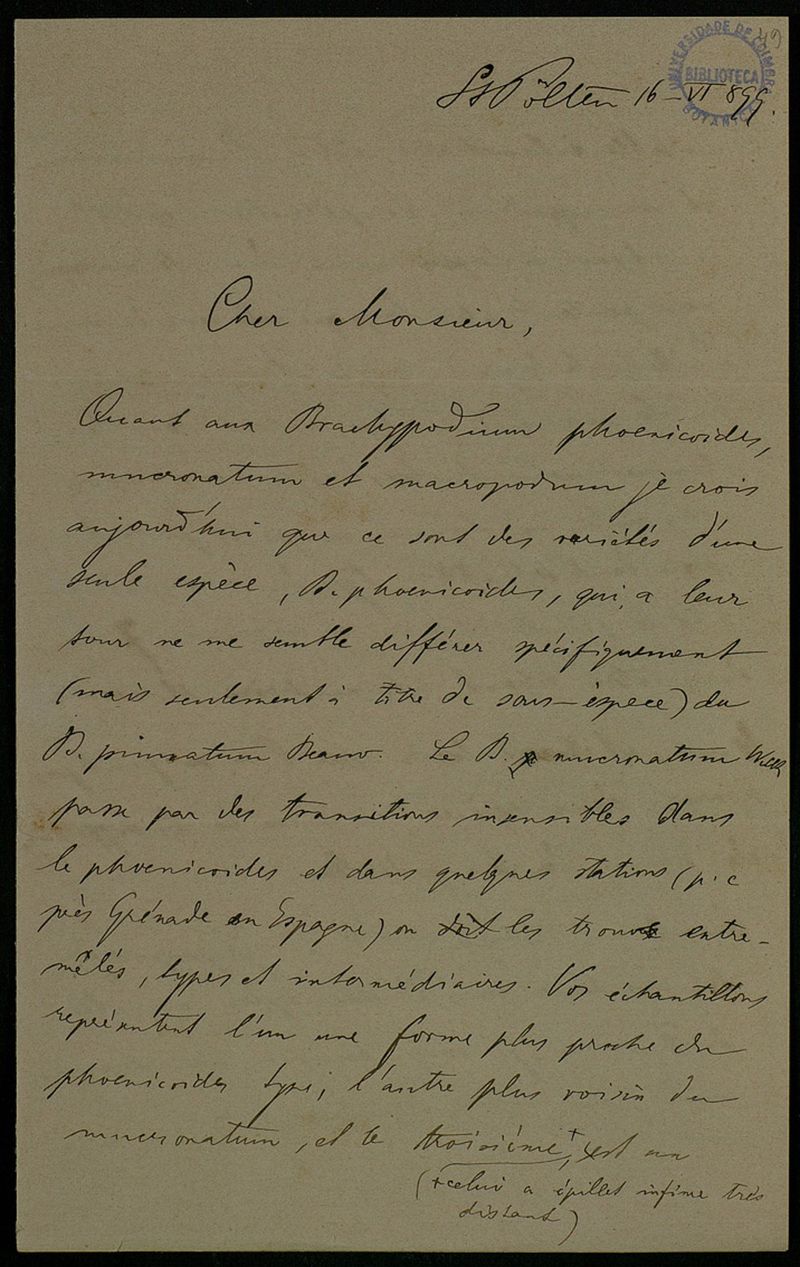 49
UNIVERSIDADE DE COIMBRA
BIBLIOTECA
BOTANICA
St Pölten 16-VI 899.
Cher Monsieur,
Quant aux Brachypodium phoenicoides,
mucronatum et macropodum je crois
aujourd'hui que ce sont des variétés d'une
seule espèce, B. phoenicoides, qui, a leur
tour ne me semble différer spécifiquement
(mais seulement à titre de sous-éspece) du
B. pinnatum Beauv. Le B. mucronatum Willk
passe par des transitions insensibles dans
le phoenicoides et dans quelques stations (p. e
près Grénade en Espagne) on doit les trouve entre-
mêlés, types et intermédiaires. Vos échantillons
représentent l'un une forme plus proche du
phoenicoides type, l'autre plus voisin du
mucronatum, et le troisiéme+, est un
(+celui a épillet infime très
distant)